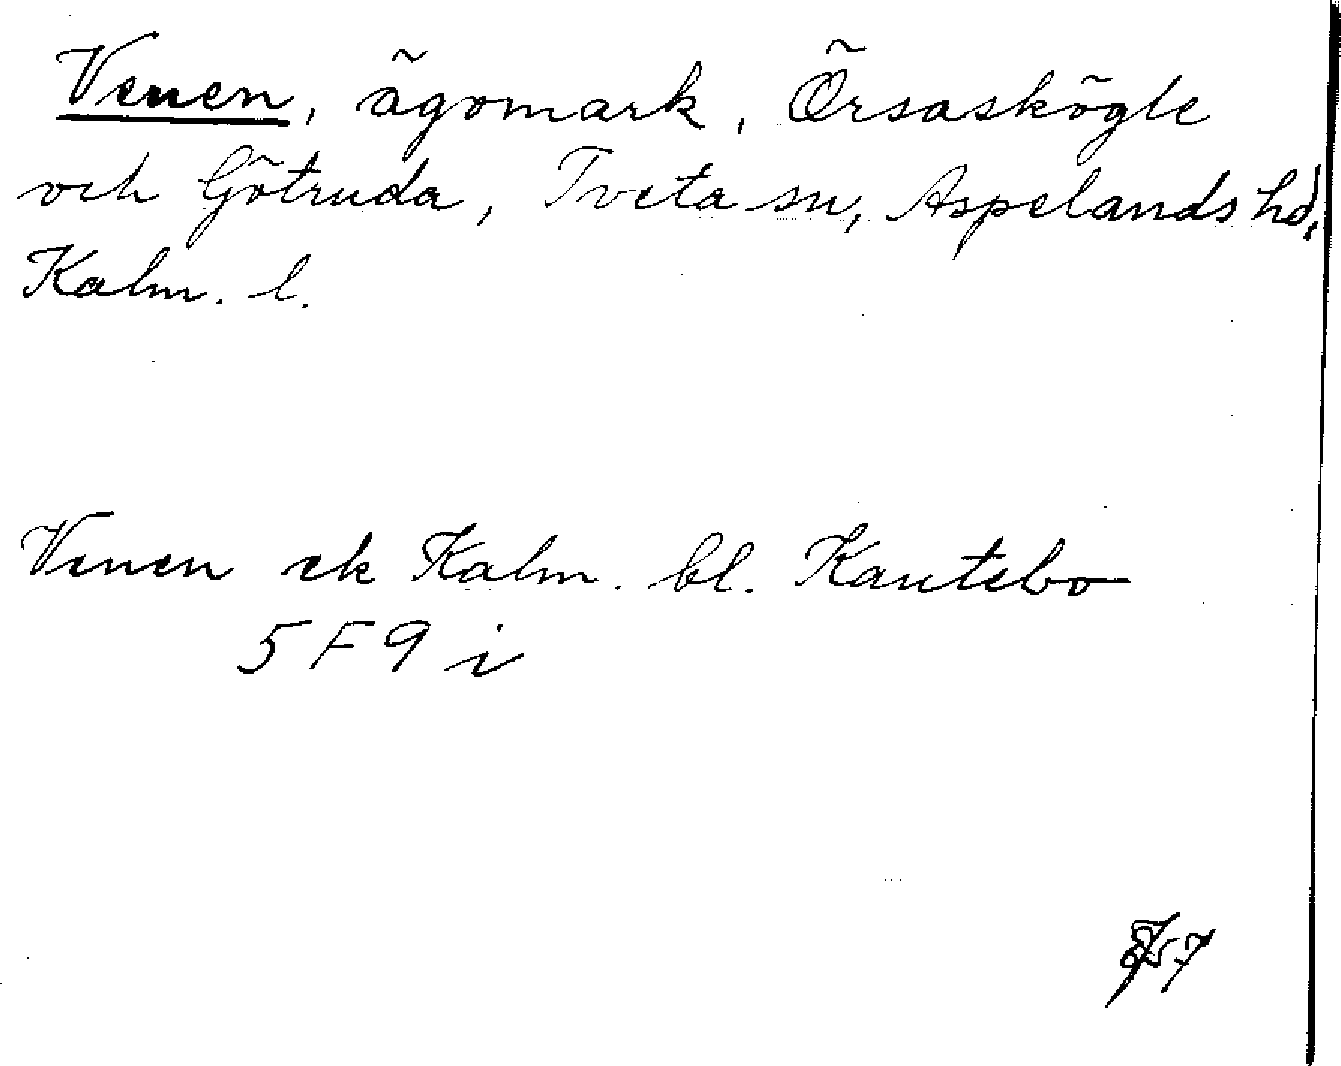 Venen, ägomark, Örsaskögle
och Götruda, Tveta sn, Aspelands hd,
Kalm. l.
Venen ek Kalm. bl. Kantebo
5 F 9 i